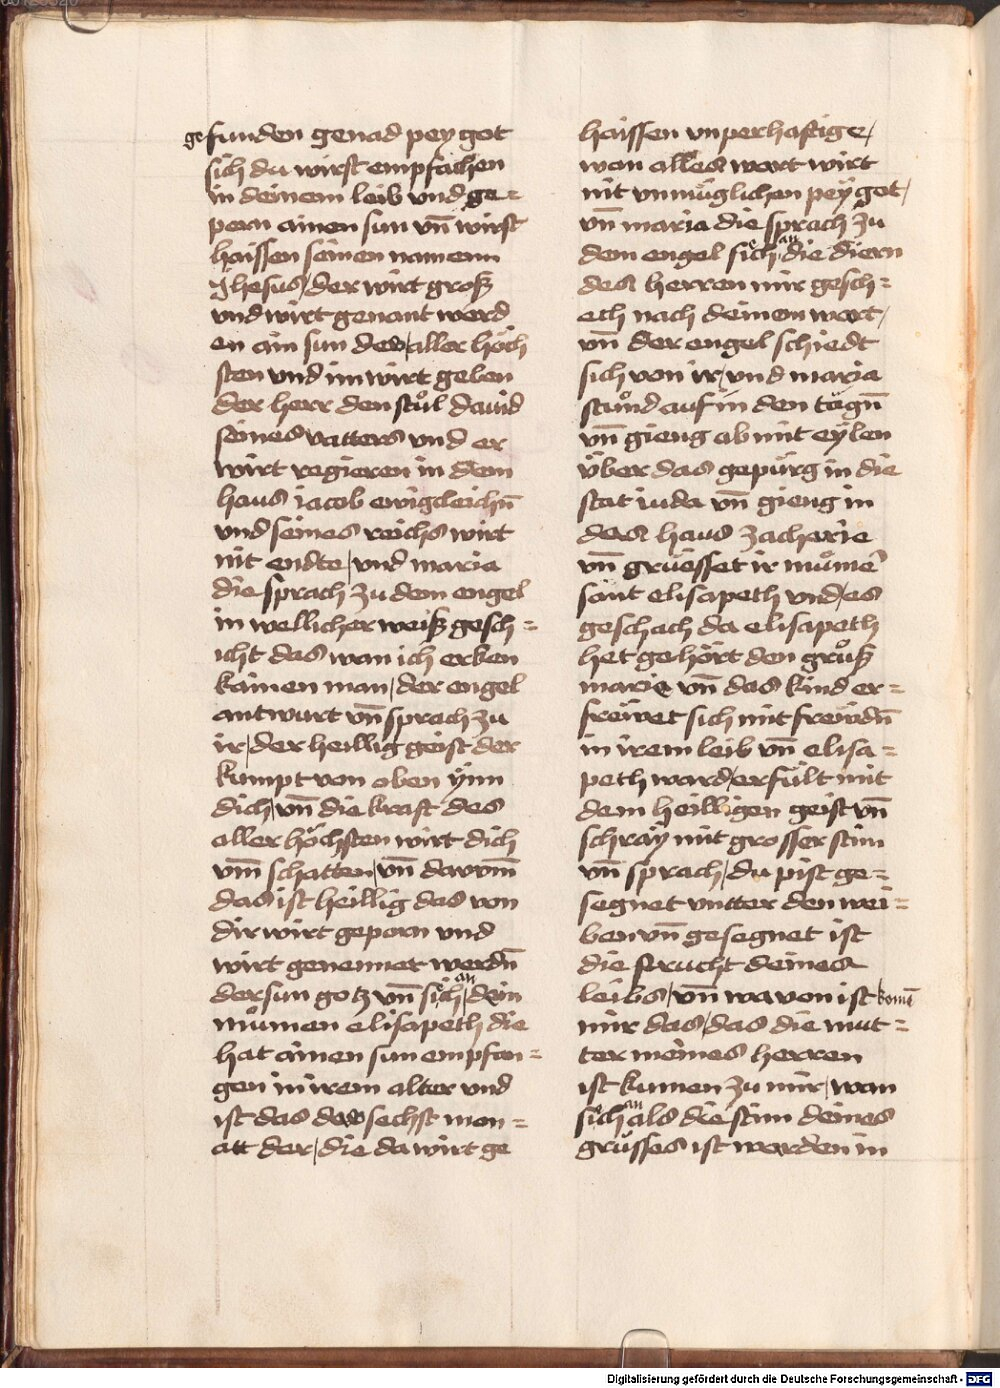 gefunden genad pey got
sich du wirst empfachen
in deinem leib vnd ge=
pern ainen sun vn̄ wirst
haissen seinen namenn
Jhesus / der wirt groß
vnd wirt genant werd
en ain sun des / aller höch
sten vnd im wirt geben
der herr den stůl dauid
seines vatters vnd er
wirt regieren in dem
haus iacob ewigcleichn̄
vnd seines reichs wirt
nit endte / vnd maria
die sprach zu dem engel
in wellicher weiß gesch=
icht das wan ich erken
kainen man / der engel
antwurt vn̄ sprach zu
ir / der heillig geist der
kumpt von oben ynn
dich / vn̄ die kraft des
aller höchsten wirt dich
vm̄ schatten / vn̄ darvm̄
das ist heillig das von
dir wirt geporn vnd
wirt genennet werdn̄
der sun gotz vn̄ sich an / dein
můmen elisapeth die
hat ainen sun empfan=
gen in irem alter vnd
ist das der sechst mon=
att der / die da wirt ge
haissen vnperhaftige /
wan alles wort wirt
nit vnmüglichen pey got /
vn̄ maria die sprach zu
dem engel sich an die diern
des herren mir gesch=
ech nach deinem wort /
vn̄ der engel schiedt
sich von ir / vnd maria
stůnd auf in den tägn̄
vn̄ gieng ab mit eylen
über das gepürg in die
stat iuda vn̄ gieng in
das haus zacharie
vn̄ grüesset ir můmē
sant elisapeth vnd / es
geschach da elisapeth
het gehört den grůß
marie vn̄ das kind er=
freiwet sich mit freiwdn̄
in irem leib vn̄ elisa=
peth ward / erfült mit
dem heilligen geist vn̄
schray mit grosser stim
vn̄ sprach / du pist ge=
segnet vntter den wei=
ben vn̄ gesegnet ist
die frucht deines
leibs / vn̄ wa von ist komē
mir das / das die mut=
ter meines herren
ist kumen zu mir / wan
sich an als die stim deines
grůsses ist worden in
Digitalisierung gefördert durch die Deutsche Forschungsgemeinschaft - DFG